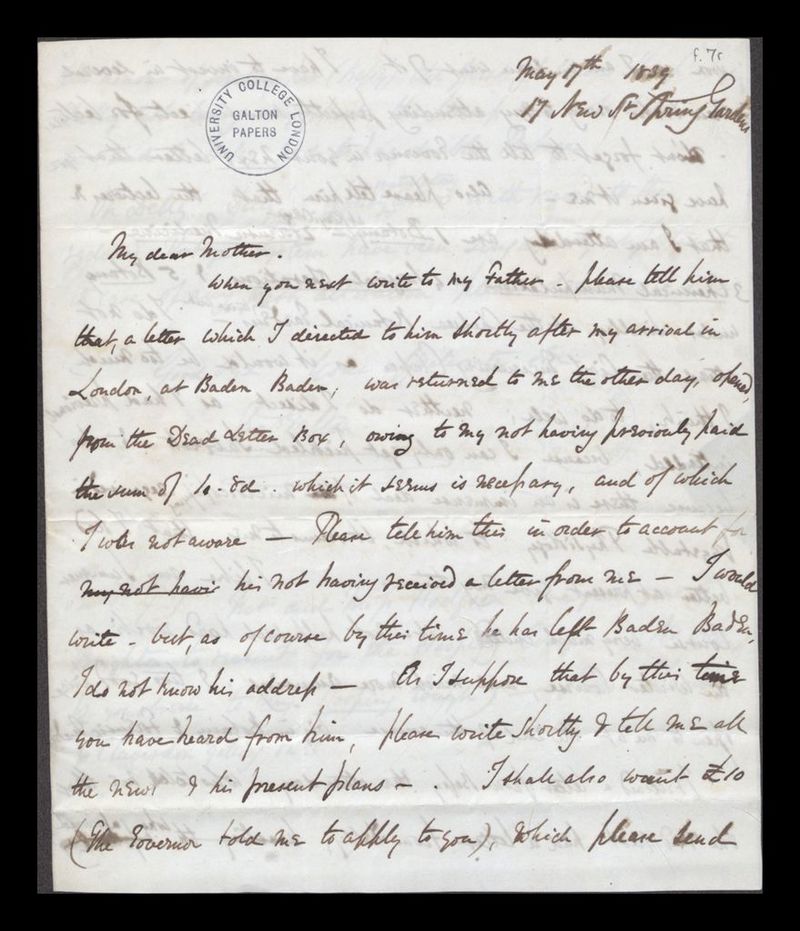 f. 7r
May 17th 1839
17 New St Spring Gardens
UNIVERSITY COLLEGE LONDON
GALTON
PAPERS
My dear Mother.
When you next write to my Father - please tell him
that, a letter which I directed to him shortly after my arrival in
London, at Baden Baden, was returned to me the other day, opened,
from the Dead Letter Box, owing to my not having previously paid
the sum of 1s. 8d. which it seems is necessary, and of which
I was not aware — Please tell him this in order to account for
my not havi his not having received a letter from me — I would
write - but, as of course by this time he has left Baden Baden,
I do not know his address — As I suppose that by this time
you have heard from him, please write shortly & tell me all
the news & his present plans - . I shall also want £10
(The Governor told me to apply to you), which please send